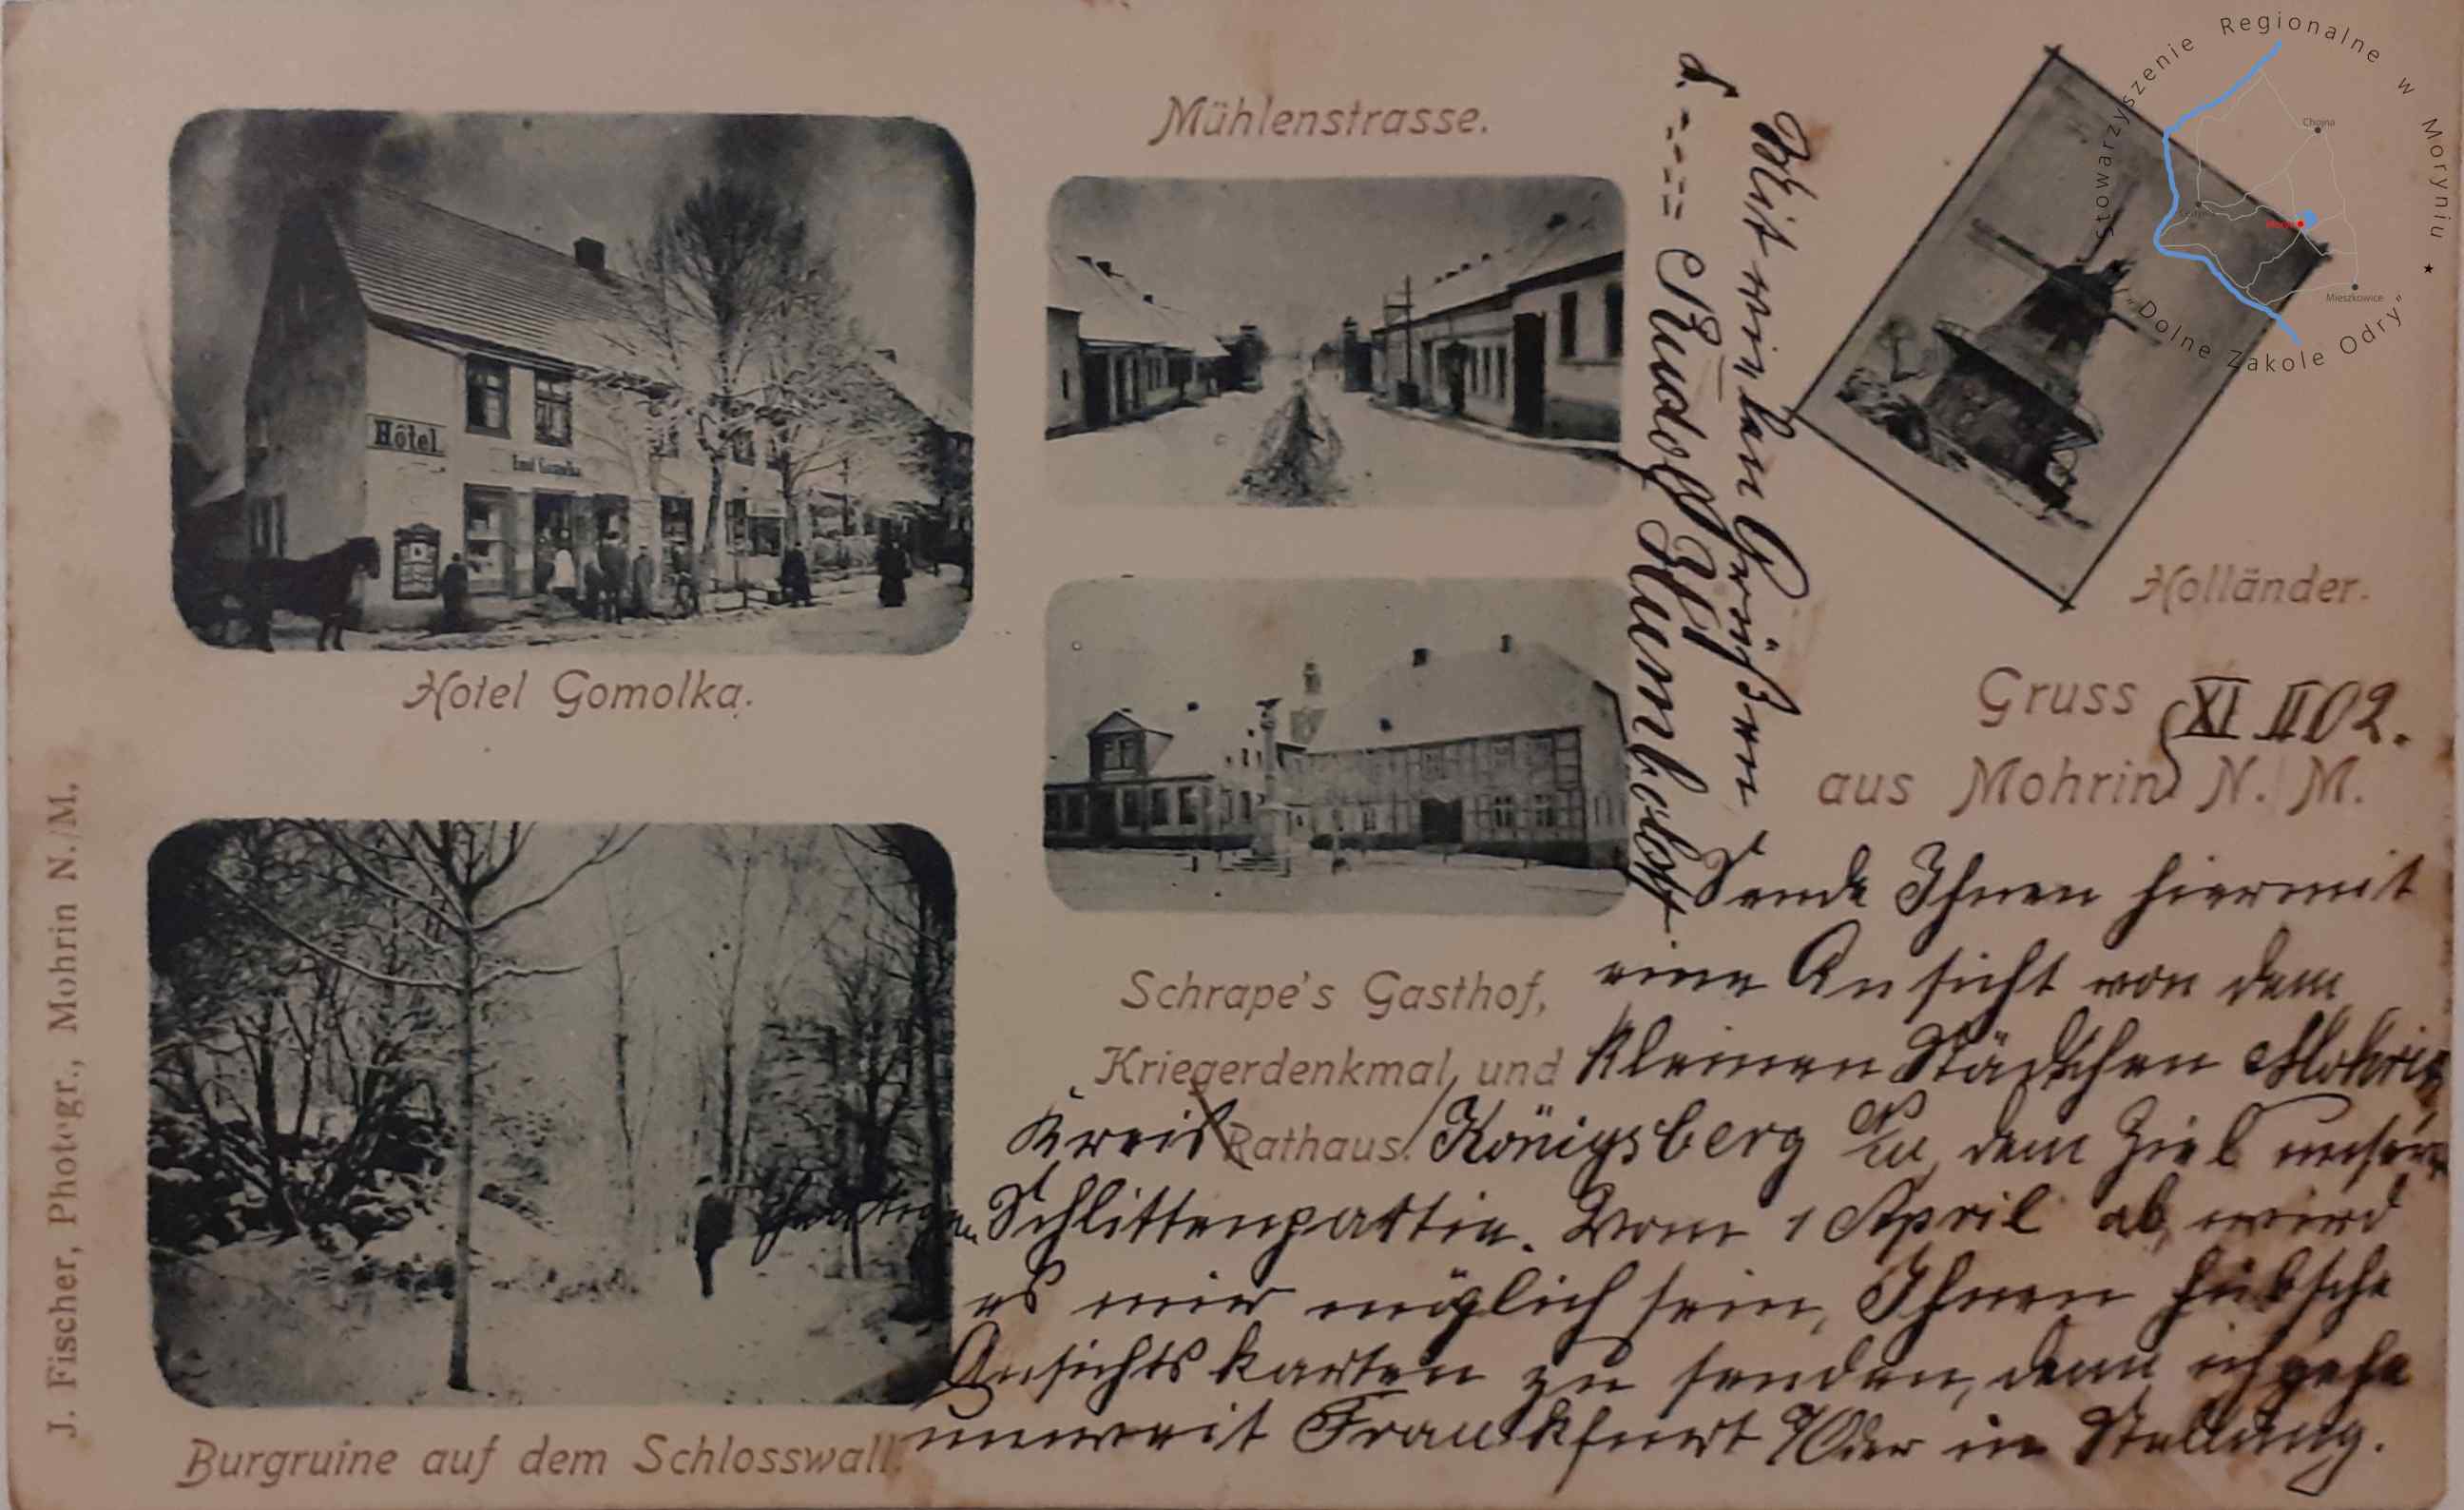 Mühlenstrasse.
Hôtel
Emil Gomolka
Hotel Gomolka.
Holländer.
Gruss
aus Mohrin N. M.
XI. II 02.
Schrape's Gasthof,
Kriegerdenkmal, und
Rathaus.
Burgruine auf dem Schlosswall.
J. Fischer, Photogr., Mohrin N./M.
Sende Ihnen hiermit
eine Ansicht von dem
kleinen Städtchen Mohrin
Kreis Königsberg N/M, dem Ziel unserer
heutigen Schlittenpartie. Vom 1 April ab, wird
es mir möglich sein, Ihnen hübsche
Ansichtskarten zu senden, denn ich gehe
unweit Frankfurt a/Oder in Stellung.
Mit vielen Grüßen
Rudolf
Stowarzyszenie Regionalne w Moryniu ★
"Dolne Zakole Odry"
Chojna
Mieszkowice